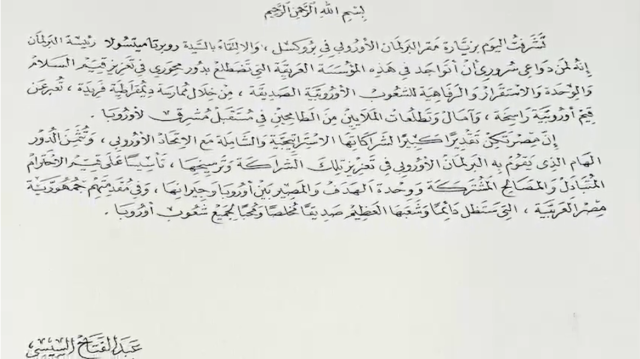 بِسْمِ اللَّهِ الرَّحْمَنِ الرَّحِيمِ
تشرفت اليوم بزيارة مقر البرلمان الأوروبي في بروكسل ، والالتقاء بالسيدة روبرتا ميتسولا رئيسة البرلمان
إنه لمن دواعي سروري أن أتواجد في هذه المؤسسة العريقة التي تضطلع بدور محوري في تعزيز قيم السلام
والوحدة والاستقرار والرفاهية للشعوب الأوروبية الصديقة ، من خلال ممارسة ديمقراطية فريدة ، تعبر عن
قيم أوروبية راسخة ، وآمال وتطلعات الملايين من الطامحين في مستقبل مشرق لأوروبا .
إن مصر تكن تقديرًا كبيرًا لشراكاتها الاستراتيجية والشاملة مع الاتحاد الأوروبي ، وتثمن الدور
الهام الذي يقوم به البرلمان الأوروبي في تعزيز تلك الشراكة وترسيخها ، تأسيسًا على قيم الاحترام
المتبادل والمصالح المشتركة ووحدة الهدف والمصير بين أوروبا وجيرانها ، وفي مقدمتهم جمهورية
مصر العربية ، التي ستظل دائمًا وشعبها العظيم صديقًا مخلصًا ومحبًا لجميع شعوب أوروبا .
عبد الفتاح السيسي